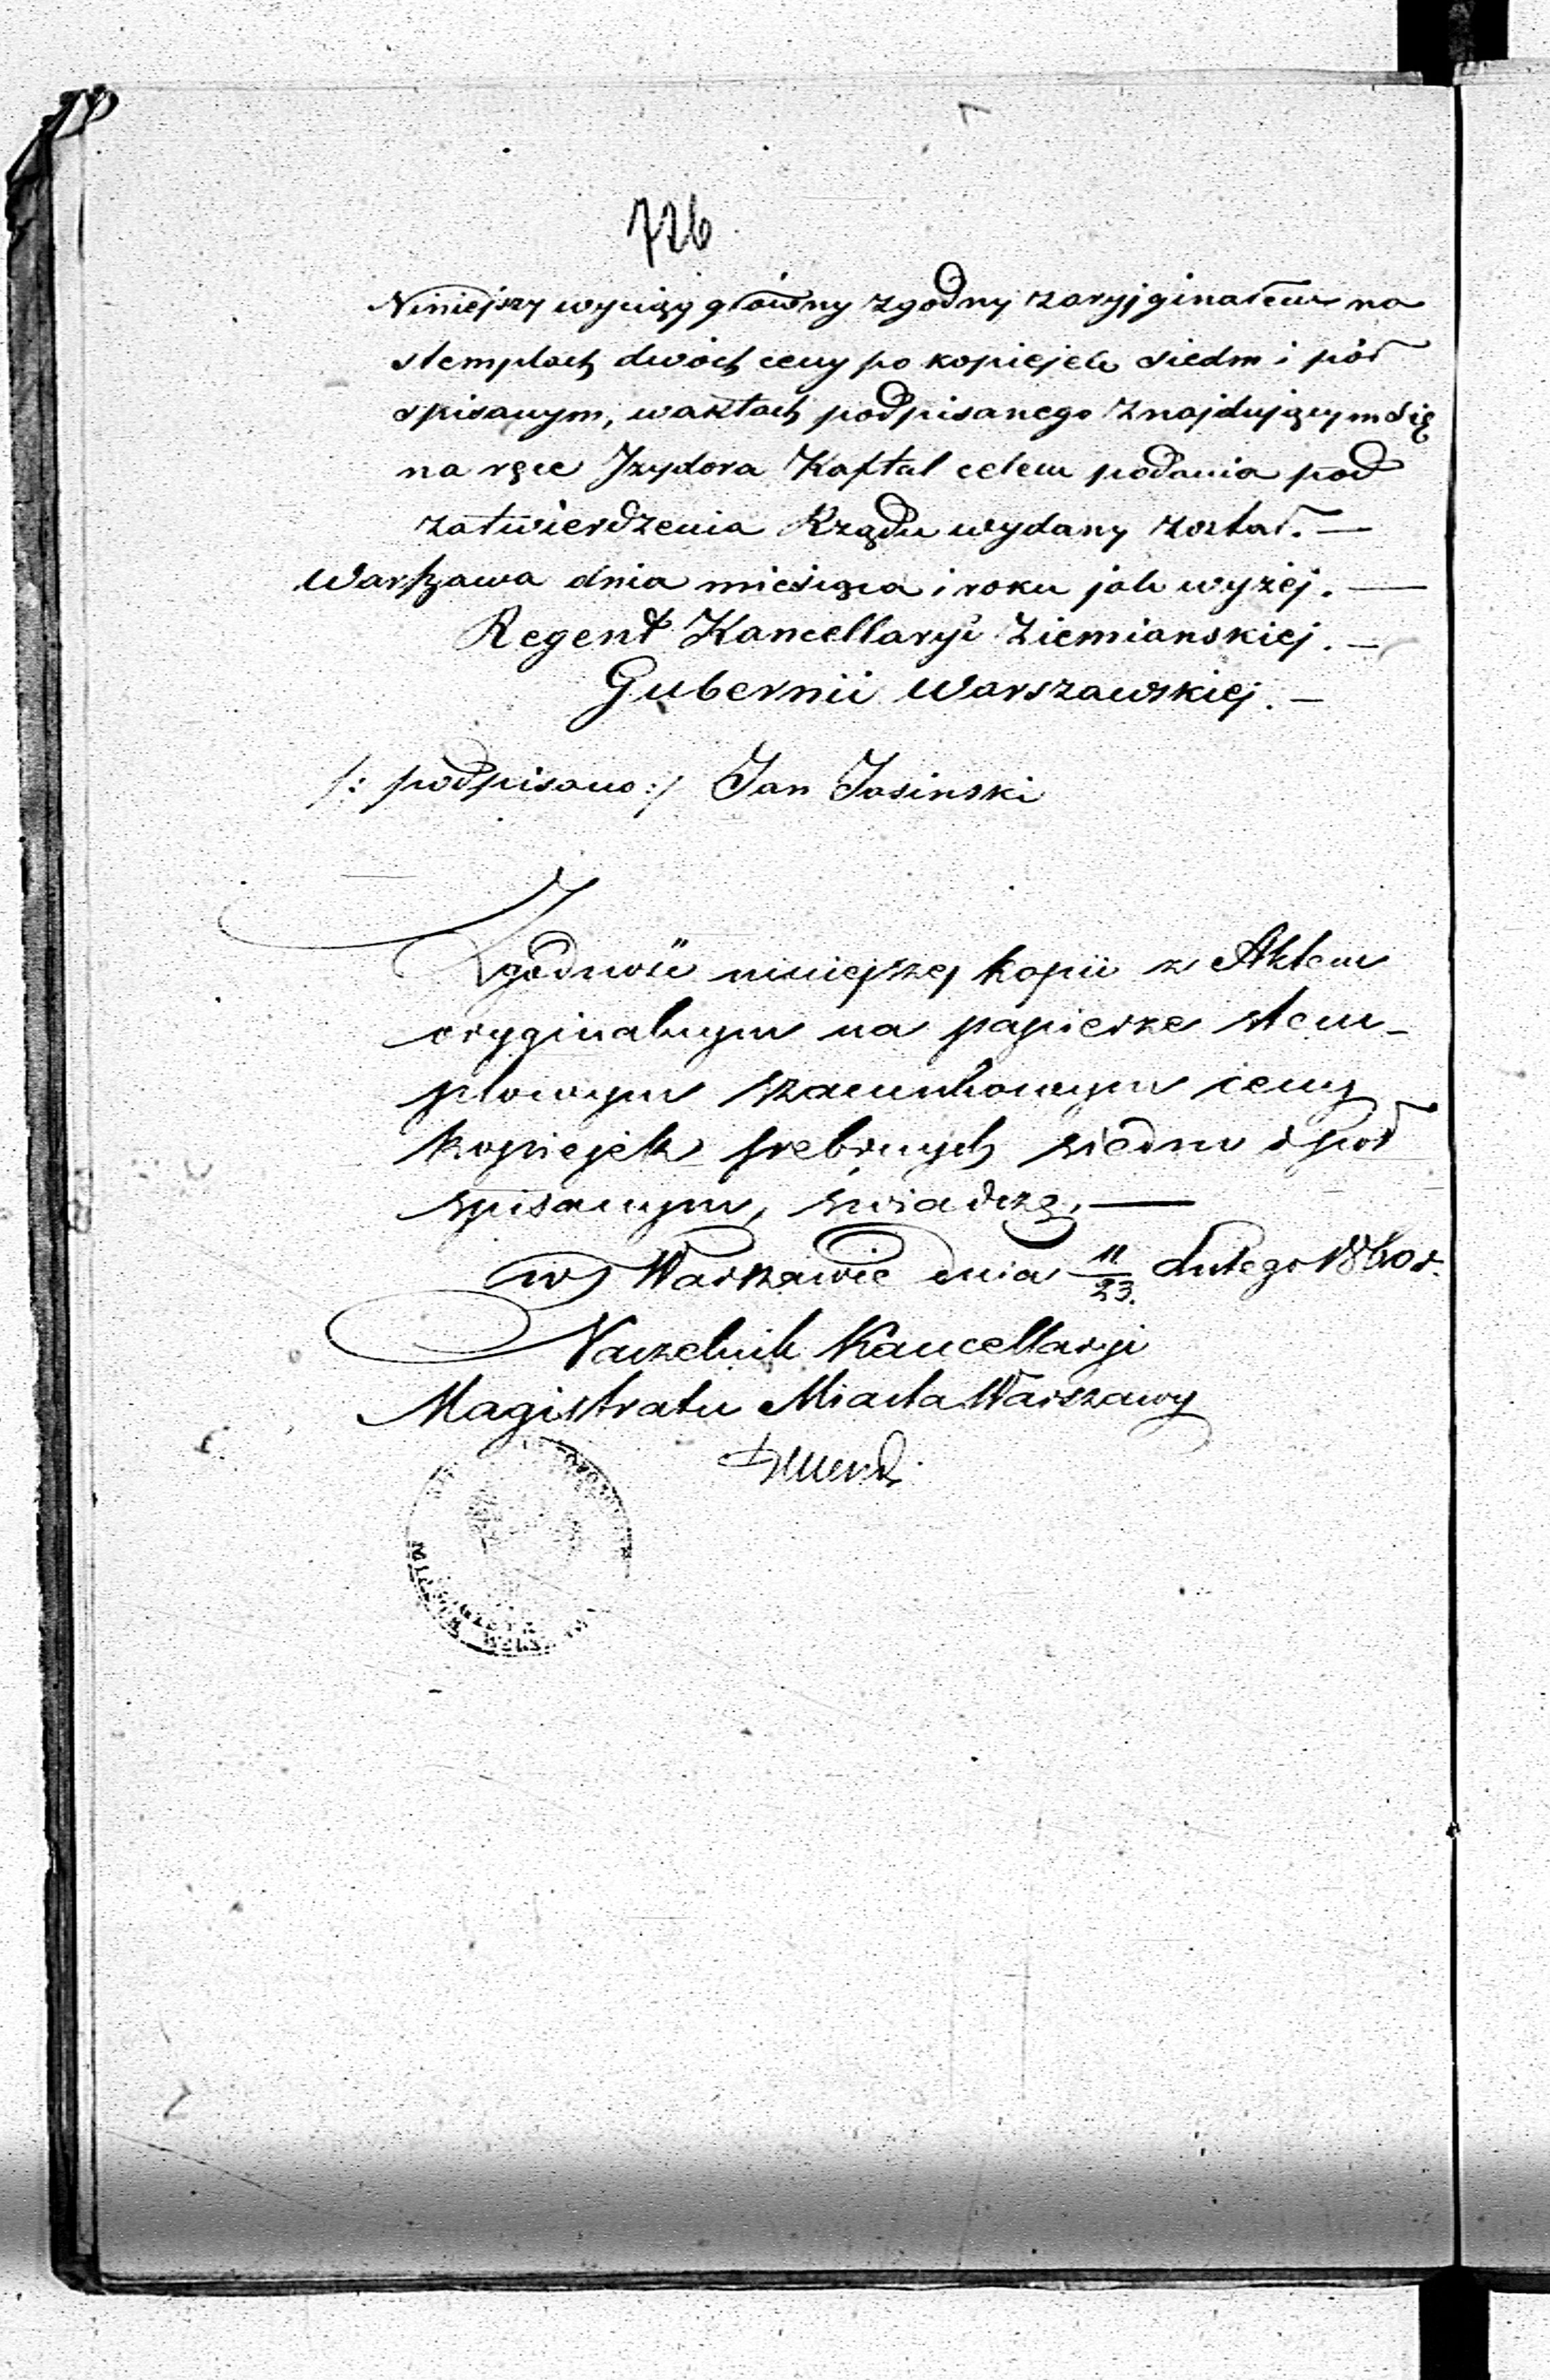 726
Niniejszy wyciąg główny zgodny zoryginałem na
stemplach dwóch ceny po kopiejek siedm i pół
spisanym, waktach podpisanego znajdującym się
na ręce Izydora Kaftal celem podania pod
zatwierdzenia Rządu wydany został. —
Warszawa dnia miesiąca i roku jak wyżej. —
Regent Kancellaryi Ziemianskiej. —
Gubernii Warszawskiej. —
/: podpisano :/ Jan Jasinski
Zgodność niniejszej kopii z Aktem
oryginalnym na papierze stem-
plowym szacunkowym ceny
kopiejek srebrnych siedm i pół
spisanym, świadczę. —
w Warszawie dnia 11/23. Lutego 1860 r.
Naczelnik Kancellaryi
Magistratu Miasta Warszawy